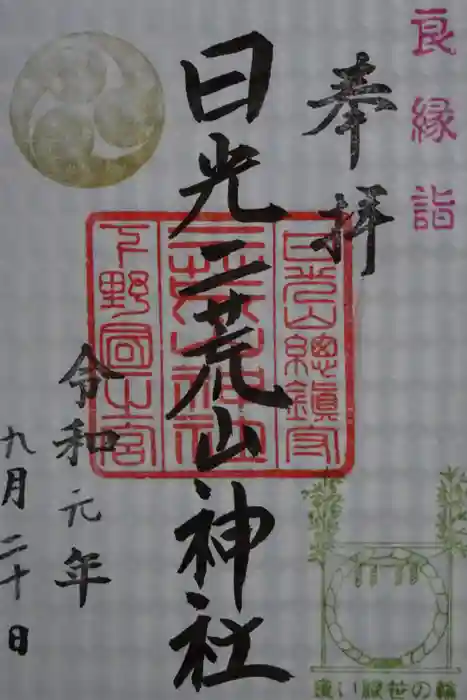 良縁詣
奉拝
日光二荒山神社
日光山總鎮守
二荒山神社
下野國一宮
令和元年
九月二十日